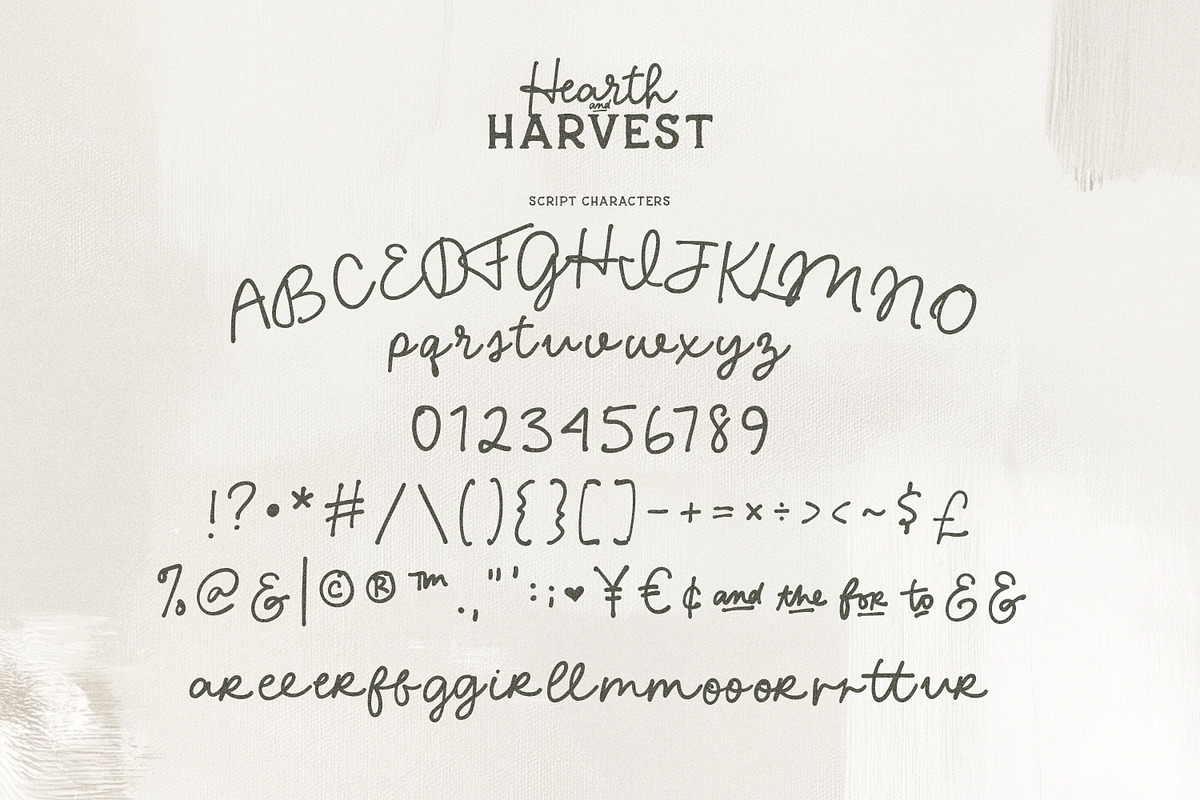 Hearth
and
HARVEST
SCRIPT CHARACTERS
ABCEDFGHIJKLMNO
pqrstuvwxyz
0123456789
!?•*#/\(){}[]-+=×÷><~$£
%@&|©®™.,"':;♥¥€¢ and the for to & &
areeerffggirllmmooorrrttur